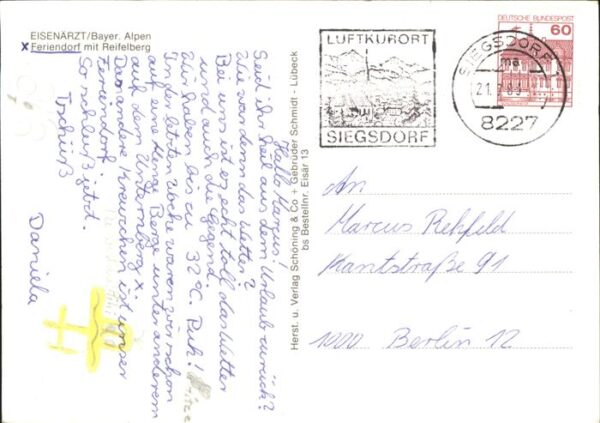 EISENÄRZT/Bayer. Alpen
x Feriendorf mit Reifelberg
Hallo Markus!
Seid ihr heil aus dem Urlaub zurück?
Wie war denn das Wetter?
Bei uns ist es echt toll das Wetter
und auch die Gegend
Wir haben bis zu 32°C. Puh!
In der letzten Woche waren wir schon
auf eine Menge Berge unter anderem
auf dem Unternberg x
Das andere Kreuzchen ist unser
Feriendorf.
So schluß jetzt.
Tschüß
Daniela
Herst. u. Verlag Schöning & Co + Gebrüder Schmidt - Lübeck
bs Bestellnr. Eisär 13
LUFTKURORT
SIEGSDORF
SIEGSDORF
21.7.83
8227
DEUTSCHE BUNDESPOST
60
An
Marcus Rehfeld
Kantstraße 91
1000 Berlin 12